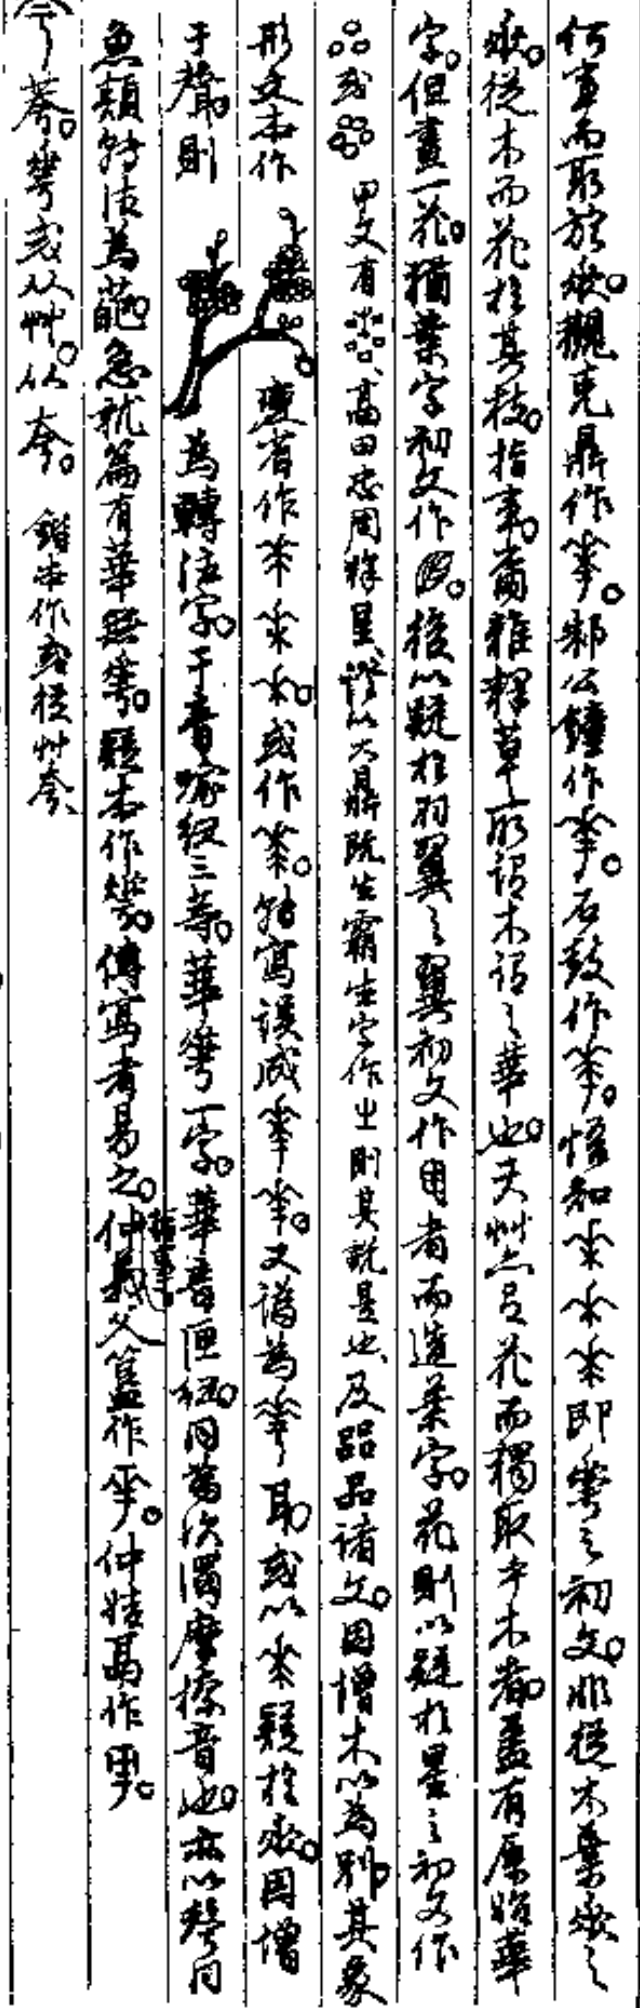 何事而取於𠂹。觀克鼎作𠌶。邾公鐘作。石鼓作。悟知即𠌶之初文。非從木葉𠂹之
𠂹。從木而花在其枝。指事。爾雅釋草所謂木謂之華也。夫艸亦有花而獨取于木者。蓋有原始華
字。但畫一花。猶葉字初文作。後以疑於羽翼之翼初文作者而造葉字。花則以疑於星之初文作
或 甲文有、高田忠周釋星、證以大鼎既生霸生字作㞢則其說是也、及晶品諸文。因增木以為別。其象
形文本作 變省作。或作。轉寫誤成。又譌為耳。或以疑於𠂹。因增
于聲。則 為轉注字。于音喻紐三等。華𠌶一字。華音匣紐。同為次濁摩擦音也。亦以聲同
魚類轉注為葩。急就篇有華無𠌶。疑本作𠌶。傳寫者易之。仲義父簋作。仲姞鬲作。
𠌶。𠌶或从艸。从夸。 鍇本作或從艸夸、